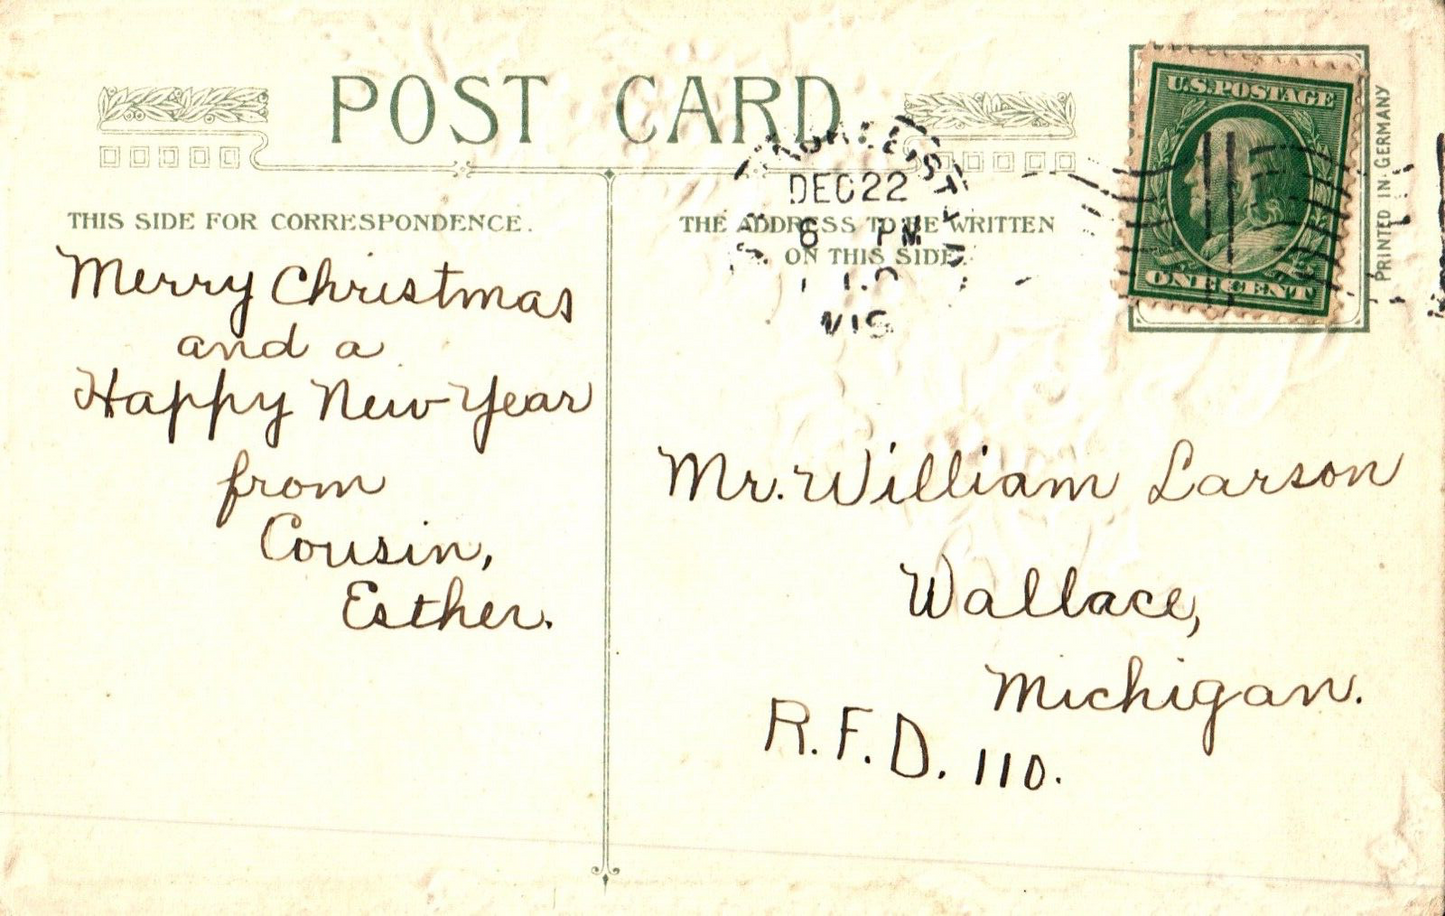 POST CARD
THIS SIDE FOR CORRESPONDENCE.
Merry Christmas
and a
Happy New Year
from
Cousin,
Esther.
THE ADDRESS TO BE WRITTEN
ON THIS SIDE.
DEC 22
6 PM
WIS
U.S. POSTAGE
ONE CENT
PRINTED IN GERMANY
Mr. William Larson
Wallace,
Michigan.
R.F.D. 110.